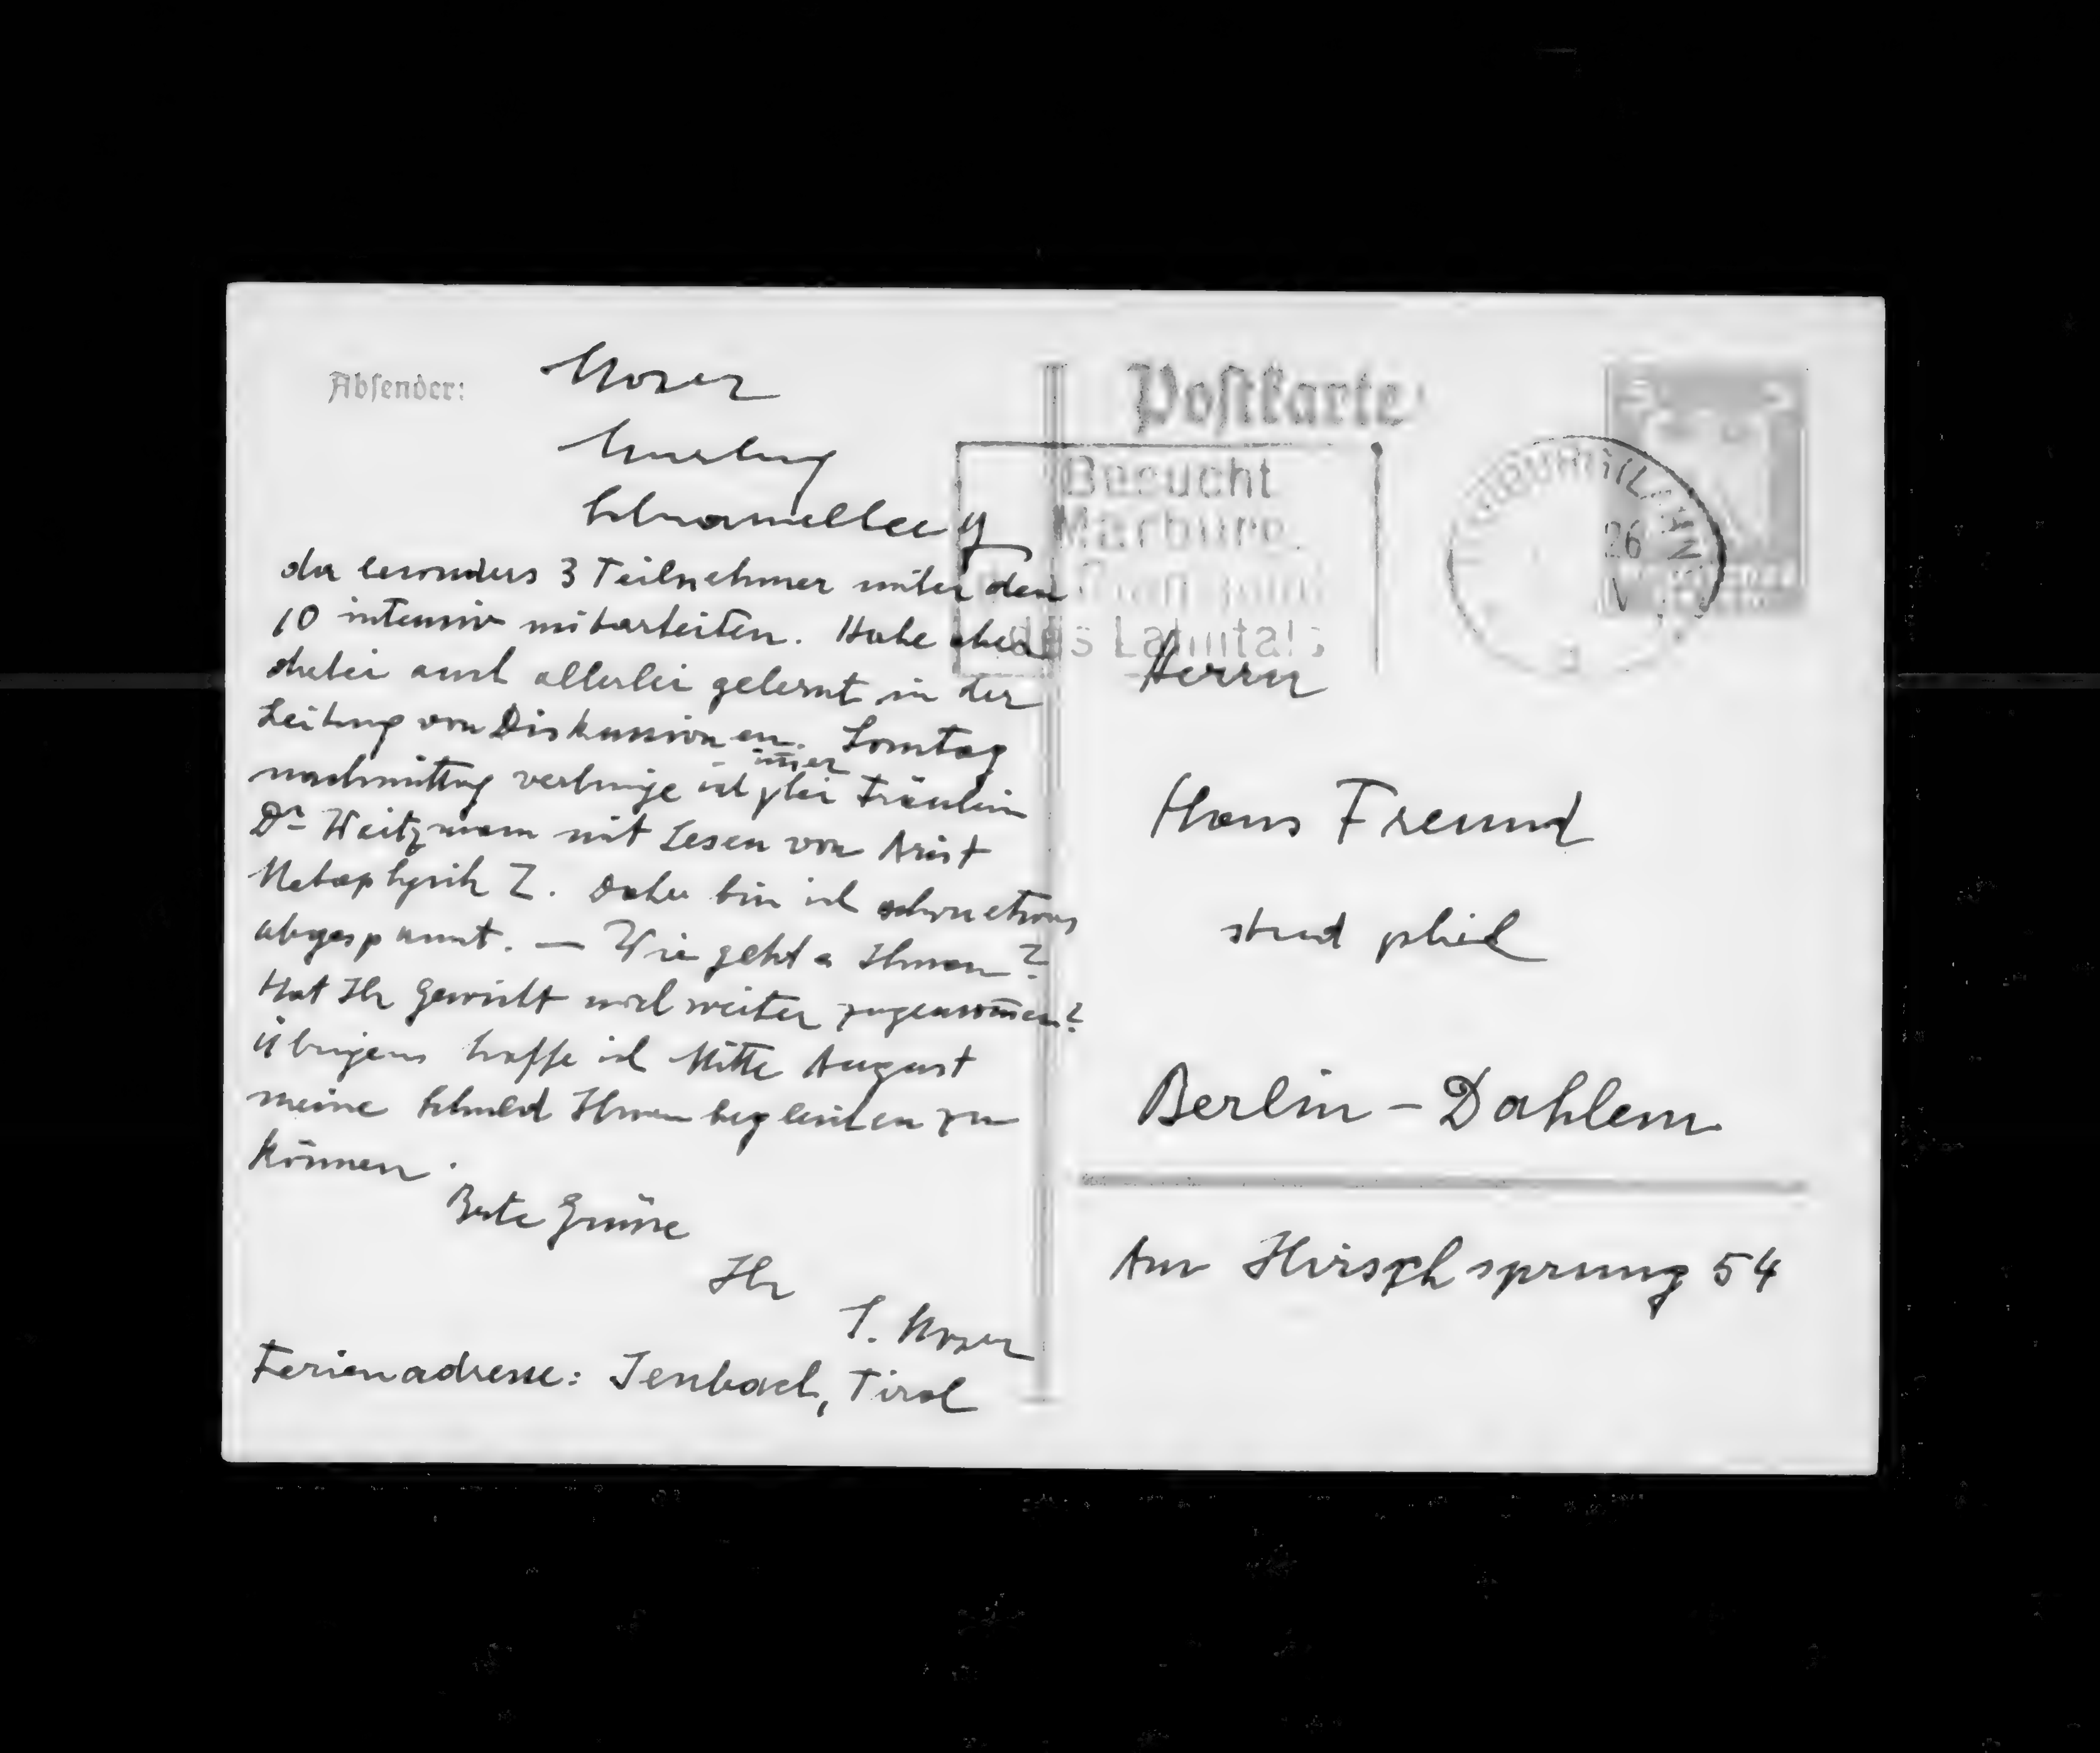 Absender: Moser
Marburg
Schwanallee 9
da besonders 3 Teilnehmer unter den
10 intensiv mitarbeiten. Habe eben
dabei auch allerlei gelernt in der
Leitung von Diskussionen. Sonntag
nachmittag verbringe ich immer bei Fräulein
Dr Weitzmann mit Lesen von Arist
Metaphysik Z. Daher bin ich schon etwas
abgespannt. — Wie geht es Ihnen?
Hat Ihr Gewicht noch weiter zugenom̄en?
Übrigens hoffe ich Mitte August
meine Schuld Ihnen begleichen zu
können.
Beste Grüsse
Ihr
S. Moser
Ferienadresse: Jenbach, Tirol
Postkarte
Besucht
Marburg
des Lahntals
MARBURG (LAHN)
26
Herrn
Hans Freund
stud phil
Berlin-Dahlem
Am Hirschsprung 54